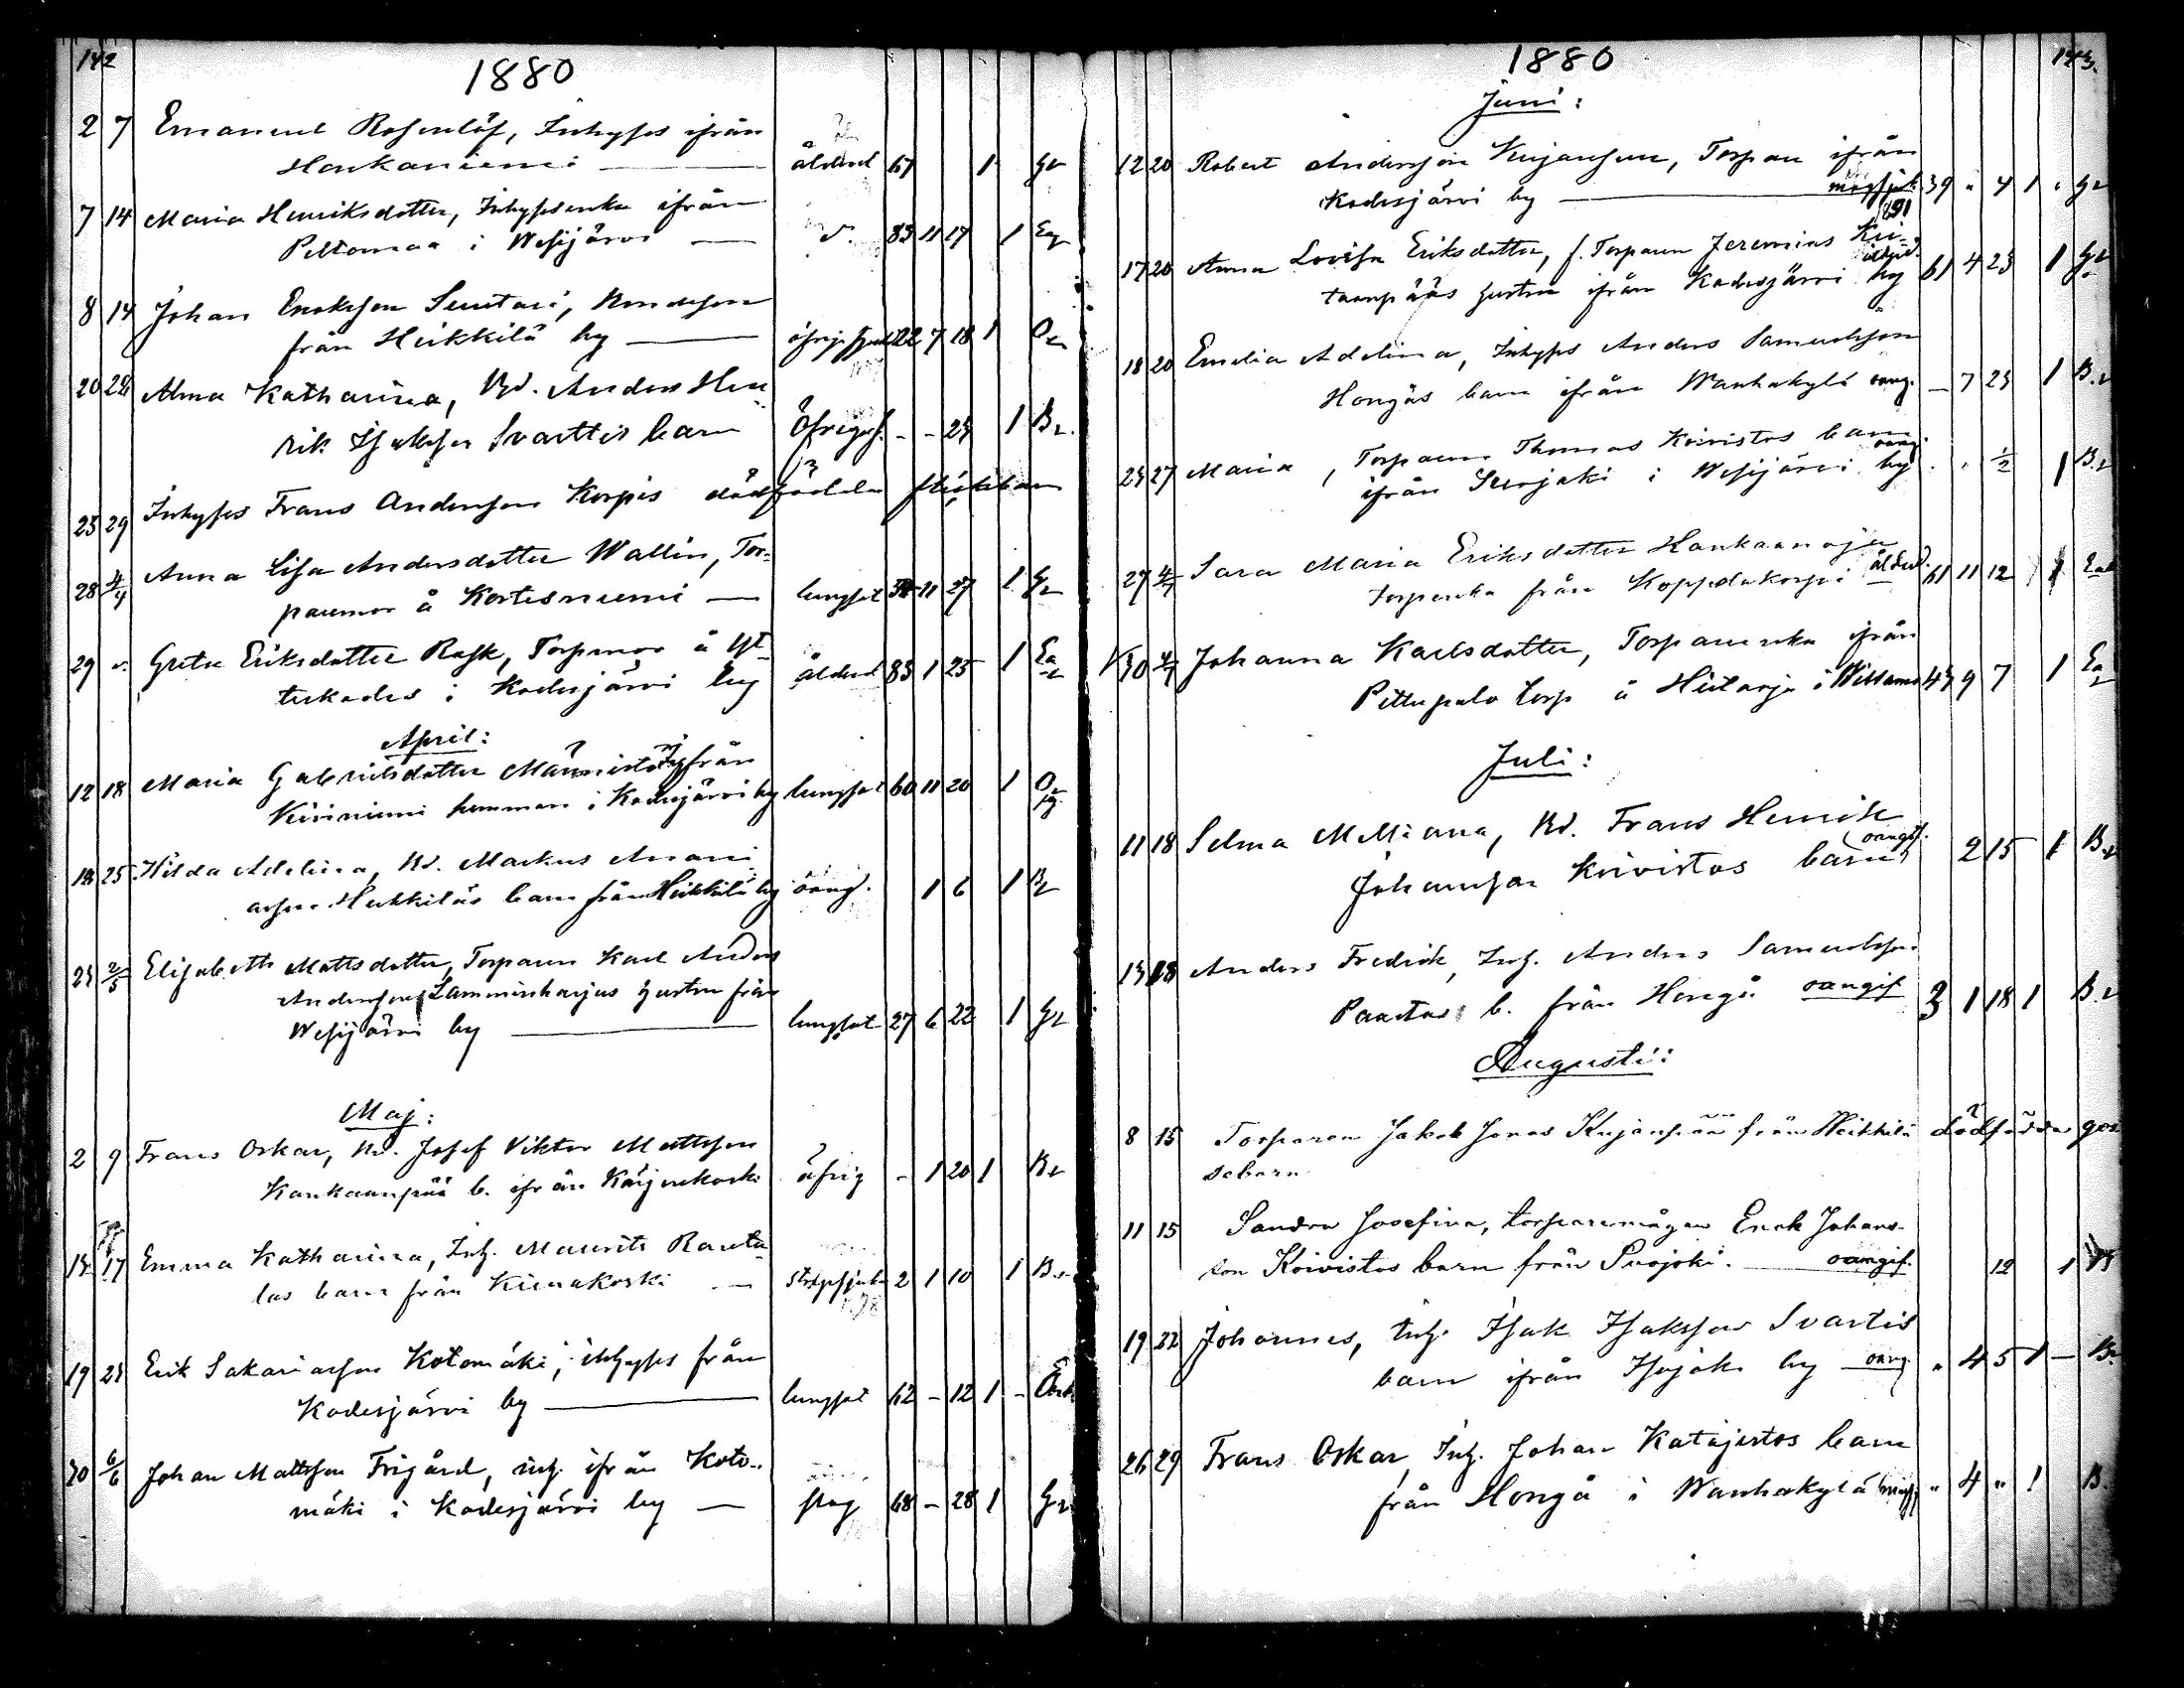 142
1880
2 7 Emanuel Rosenlöf, Inhyses ifrån
Honkaniemi — ålderd 67 1 Gr
7 14 Maria Henriksdotter, Inhysenka ifrån
Peltomaa i Wesijärvi — d. 83 11 17 1 Ea
8 14 Johan Enoksson Sentari, Bondeson
från Heikkilä by — öfrige sjukd 22 7 18 1 O
20 28 Alma Katharina, Bd. Anders Hen
rik Isaksson Svarttis barn Öfrige s. - - 24 1 Br.
25 29 Inhyses Frans Andersson Korpis dödfödda flickebarn
28 4/4 Anna Lisa Andersdotter Wallin, Tor-
paremor å Kortesniemi — lungsot 11 27 1 Gr
29 d. Greta Eriksdotter Rask, Torpmor å Yt
terkades i Kadesjärvi by ålderd 83 1 25 1 Ea
April:
12 18 Maria Gabrielsdotter Männistö, Ify från
Kiviniemi hemman i Kadesjärvi by lungsot 60 11 20 1 O
18 25 Hilda Adelina, Bd. Markus Anani
asson Heikkiläs barn från Heikkilä by oang. 1 6 1 Br
24 2/5 Elisabeth Mattsdotter, Torparen Karl Anders
Andersson Lamminharjus hustru från
Wesijärvi by — lungsot 27 6 22 1 Gr
Maj:
2 9 Frans Oskar, Bd. Josef Viktor Mattsson
Kankaanpää b. ifrån Kärjenkoski öfrig - 1 20 1 Br
14 17 Emma Katharina, Inh. Maurits Ranta
las barn från Kimakoski — strypsjuka 2 1 10 1 Br
19 23 Erik Sakariasson Kotomäki, inhyses från
Kadesjärvi by — lungsot 62 - 12 1 - Enk.
30 6/6 Johan Mattsson Frigård, inh. ifrån Koto-
mäki i Kadesjärvi by — slag 68 - 28 1 Gr
143.
1880
Juni:
12 20 Robert Andersson Kujanpää, Torpare ifrån
Kadesjärvi by — 39 " 4 1 " Gr
17 20 Anna Lovisa Eriksdotter, f. Torparen Jeremias Kei-
taanpääs hustru ifrån Kadesjärvi by ålderd. 61 4 23 1 Gr
18 20 Emelia Adelina, Inhyses Anders Samuelsson
Hongås barn ifrån Wanhakylä oang. - 7 23 1 Br
24 27 Maria, Torparen Thomas Koivistos barn
ifrån Suojoki i Wesijärvi by oang. " " 1/2 1 Br
27 4/7 Sara Maria Eriksdotter Kankaanoja
torpenka från Koppelokorpi ålderd. 61 11 12 1 Enk
30 4/7 Johanna Karlsdotter, Torparenka ifrån
Pittupalo torp å Hietarju i Willamo 43 9 7 1 Ea
Juli:
11 18 Selma Melliana, Bd. Frans Henrik
Johansson Koivistos barn oangif. 2 15 1 Br
14 18 Anders Fredrik, Inh. Anders Samuelsson
Paartas b. från Hongå oangif 3 1 18 1 Br
Augusti:
8 15 Torparen Jakob Jonas Kujanpää från Heikkilä dödfödda gos
sebarn.
11 15 Sandra Josefina, torparemågen Enok Johans-
son Koivistos barn från Suojoki. — oangif. 12 1 B
19 22 Johannes, Inh. Isak Isaksson Svartis
barn ifrån Isojoki by — oang " 4 5 1 - Br
26 29 Frans Oskar, Inh. Johan Katajistos barn
från Hongå i Wanhakylä " 4 " 1 B.